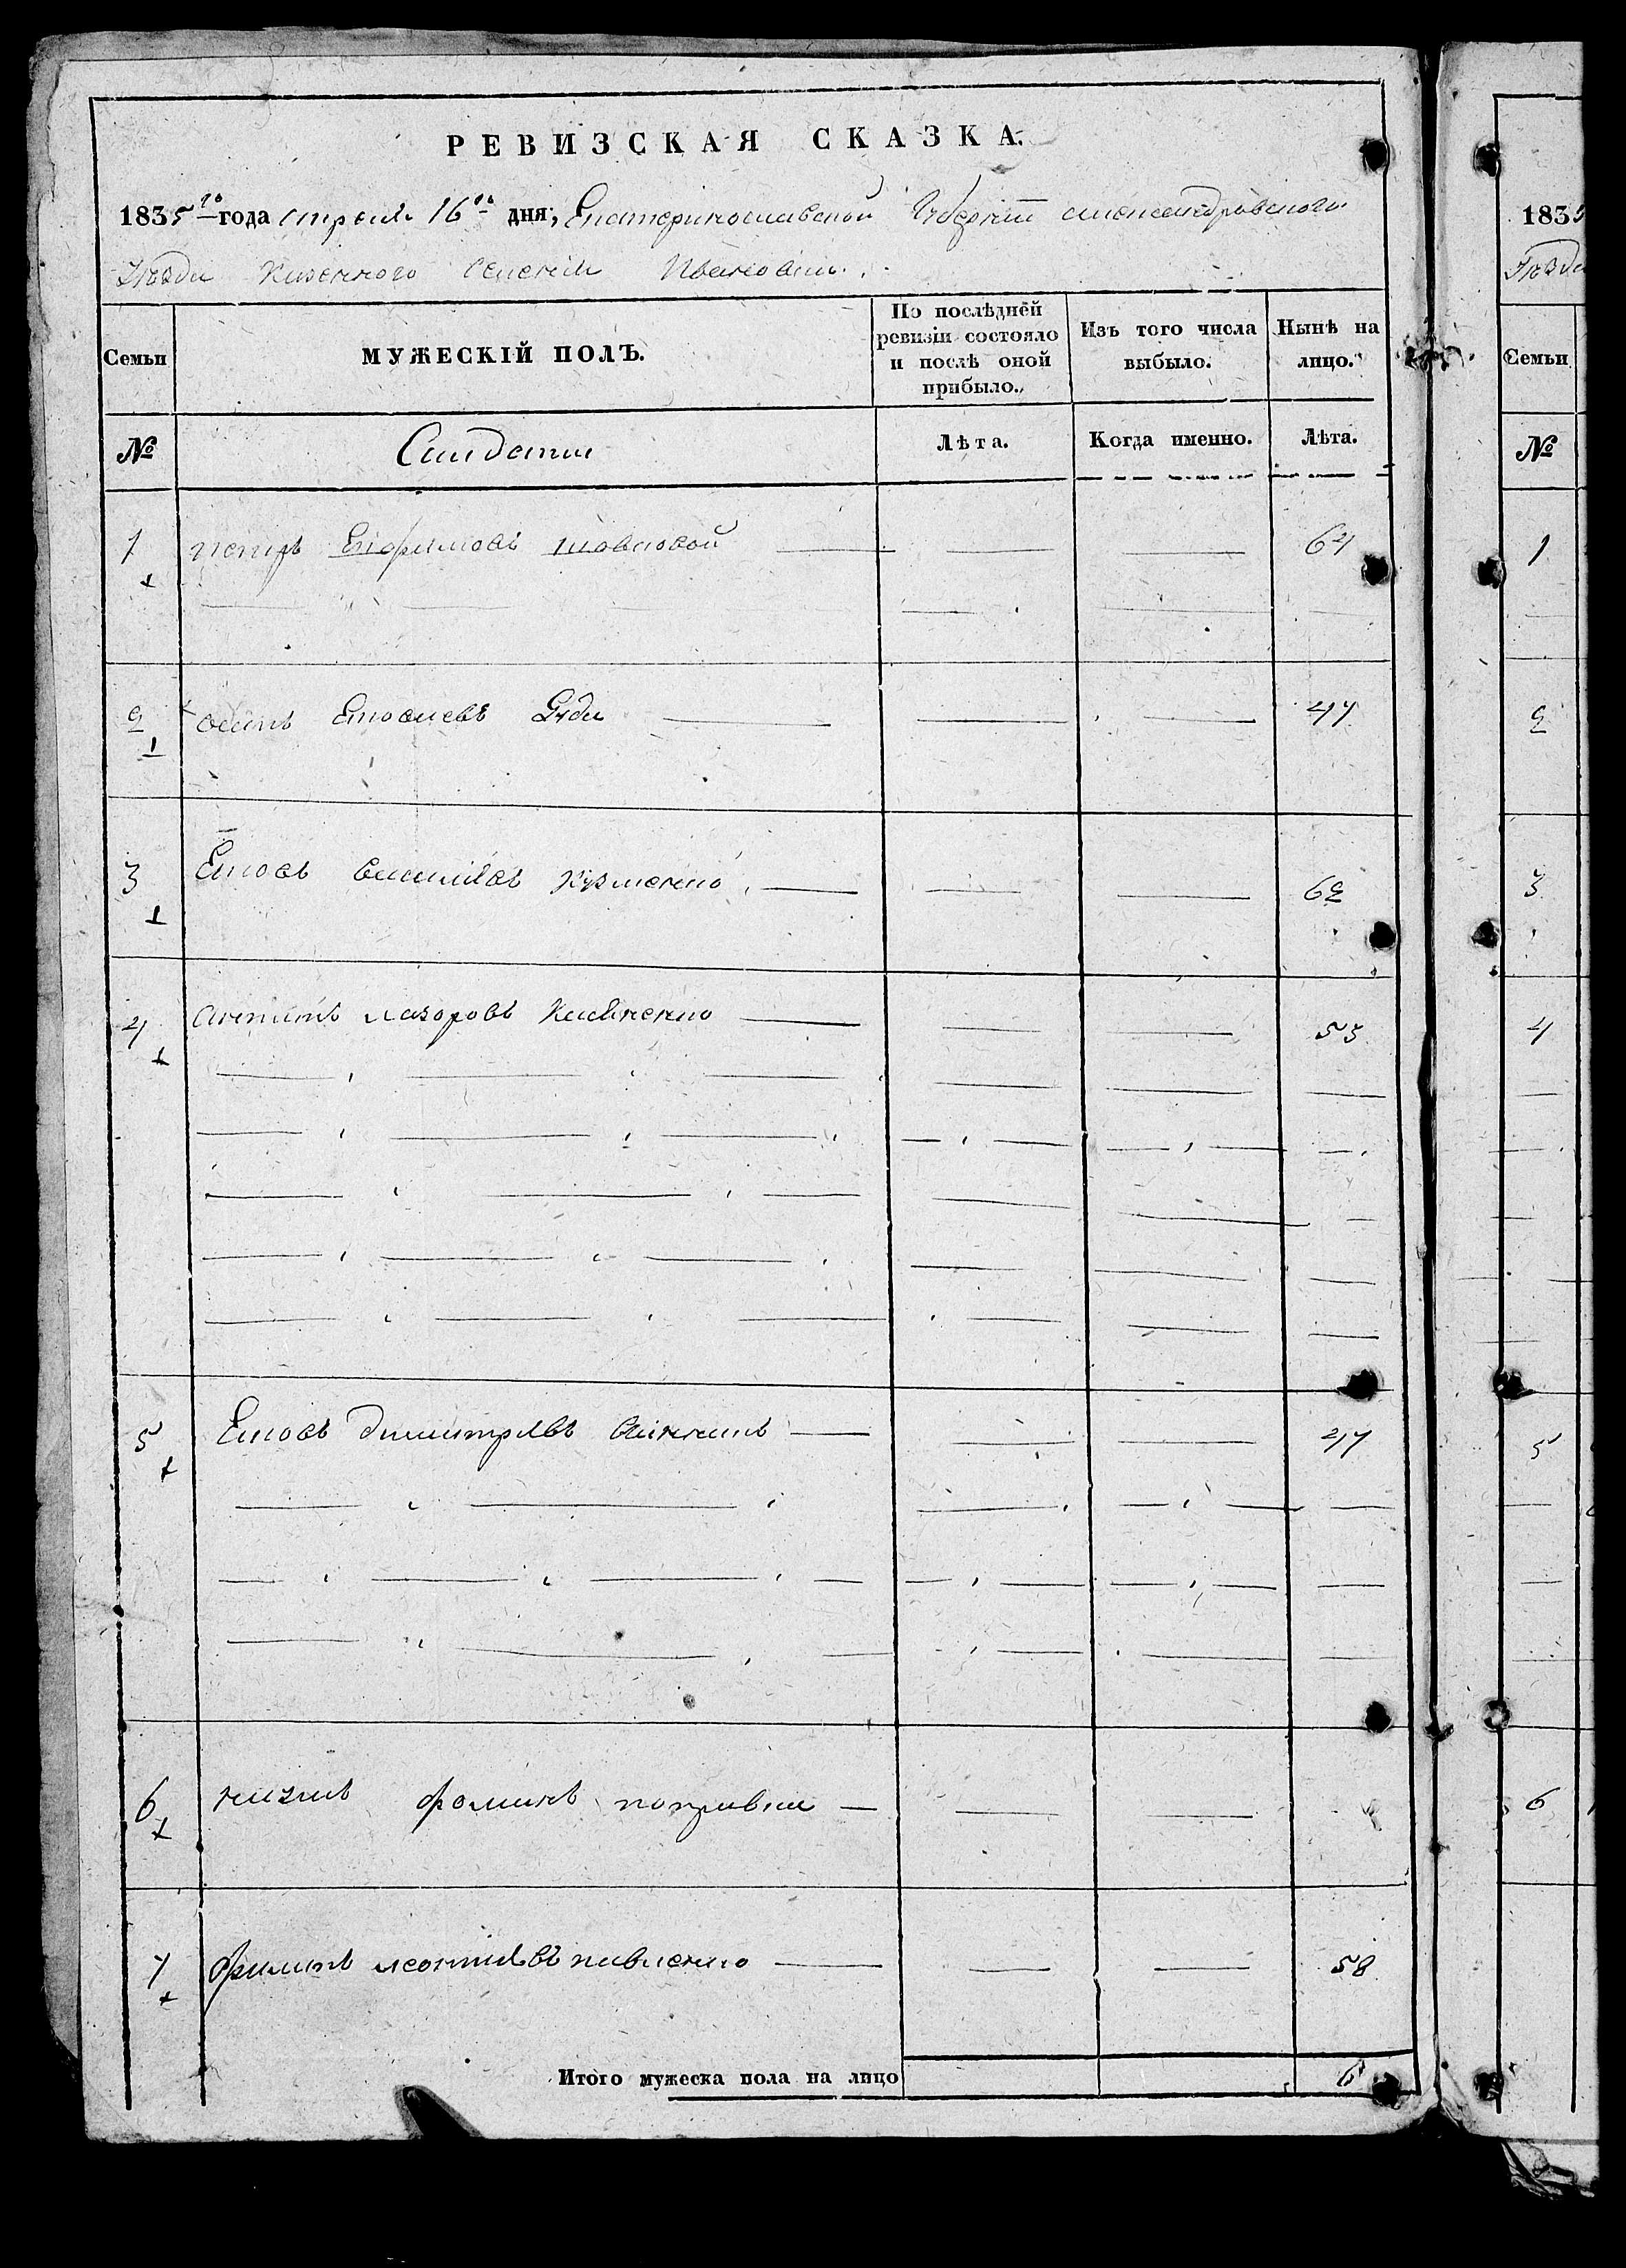 РЕВИЗСКАЯ СКАЗКА.
1835го года апреля 16го дня, Екатеринославской Губернии александровского
Уезда Казенного селения Ивановки
Семьи
МУЖЕСКІЙ ПОЛЪ.
По послѣдней ревизіи состояло и послѣ оной прибыло.
Изъ того числа выбыло.
Нынѣ на лицо.
№
Салдаты
Лѣта.
Когда именно.
Лѣта.
1 петръ Ефимовъ шовковой 64
2 осипъ 47
3 Власовъ кузменко 62
4 антипъ лазоровъ 53
5 димитріевъ 47
6 фоминъ
7 филипъ леонтіевъ павленко 58
Итого мужеска пола на лицо 6
1835
Уезда
Семьи
№
1
2
3
4
5
6